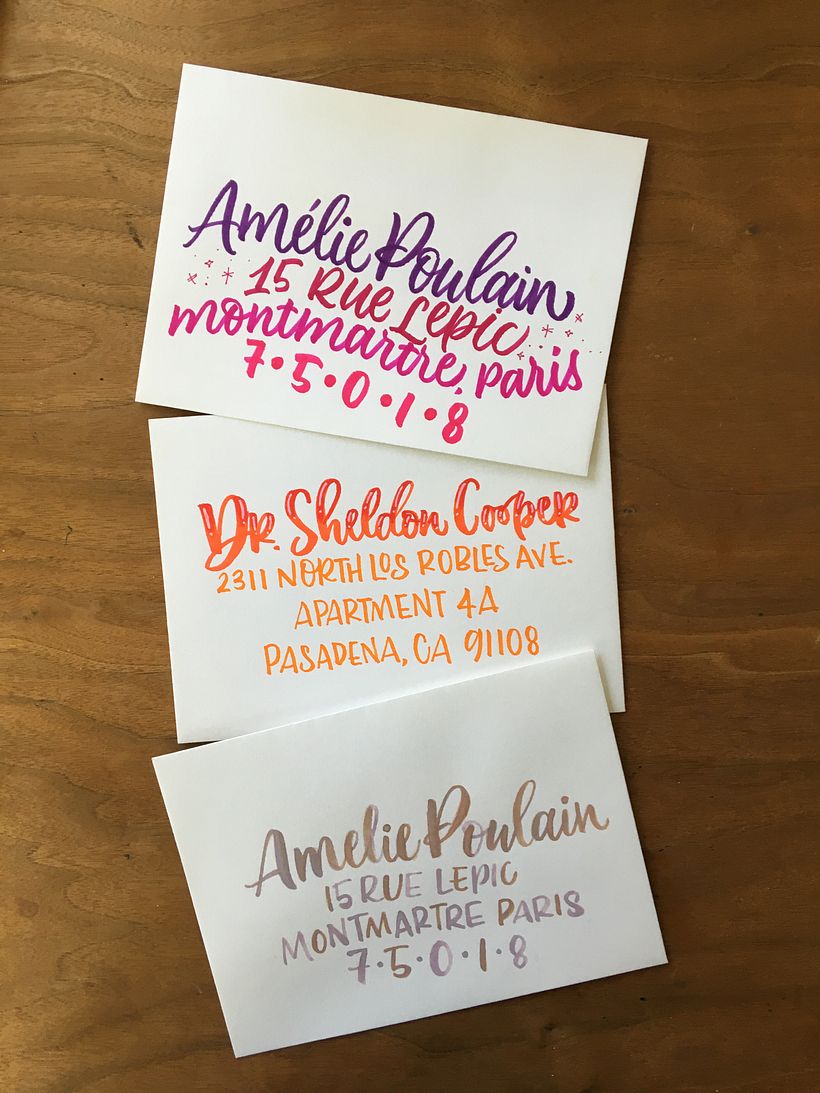 Amélie Poulain
15 Rue Lepic
montmartre, paris
7•5•0•1•8
Dr. Sheldon Cooper
2311 NORTH LOS ROBLES AVE.
APARTMENT 4A
PASADENA, CA 91108
Amelie Poulain
15 RUE LEPIC
MONTMARTRE PARIS
7•5•0•1•8